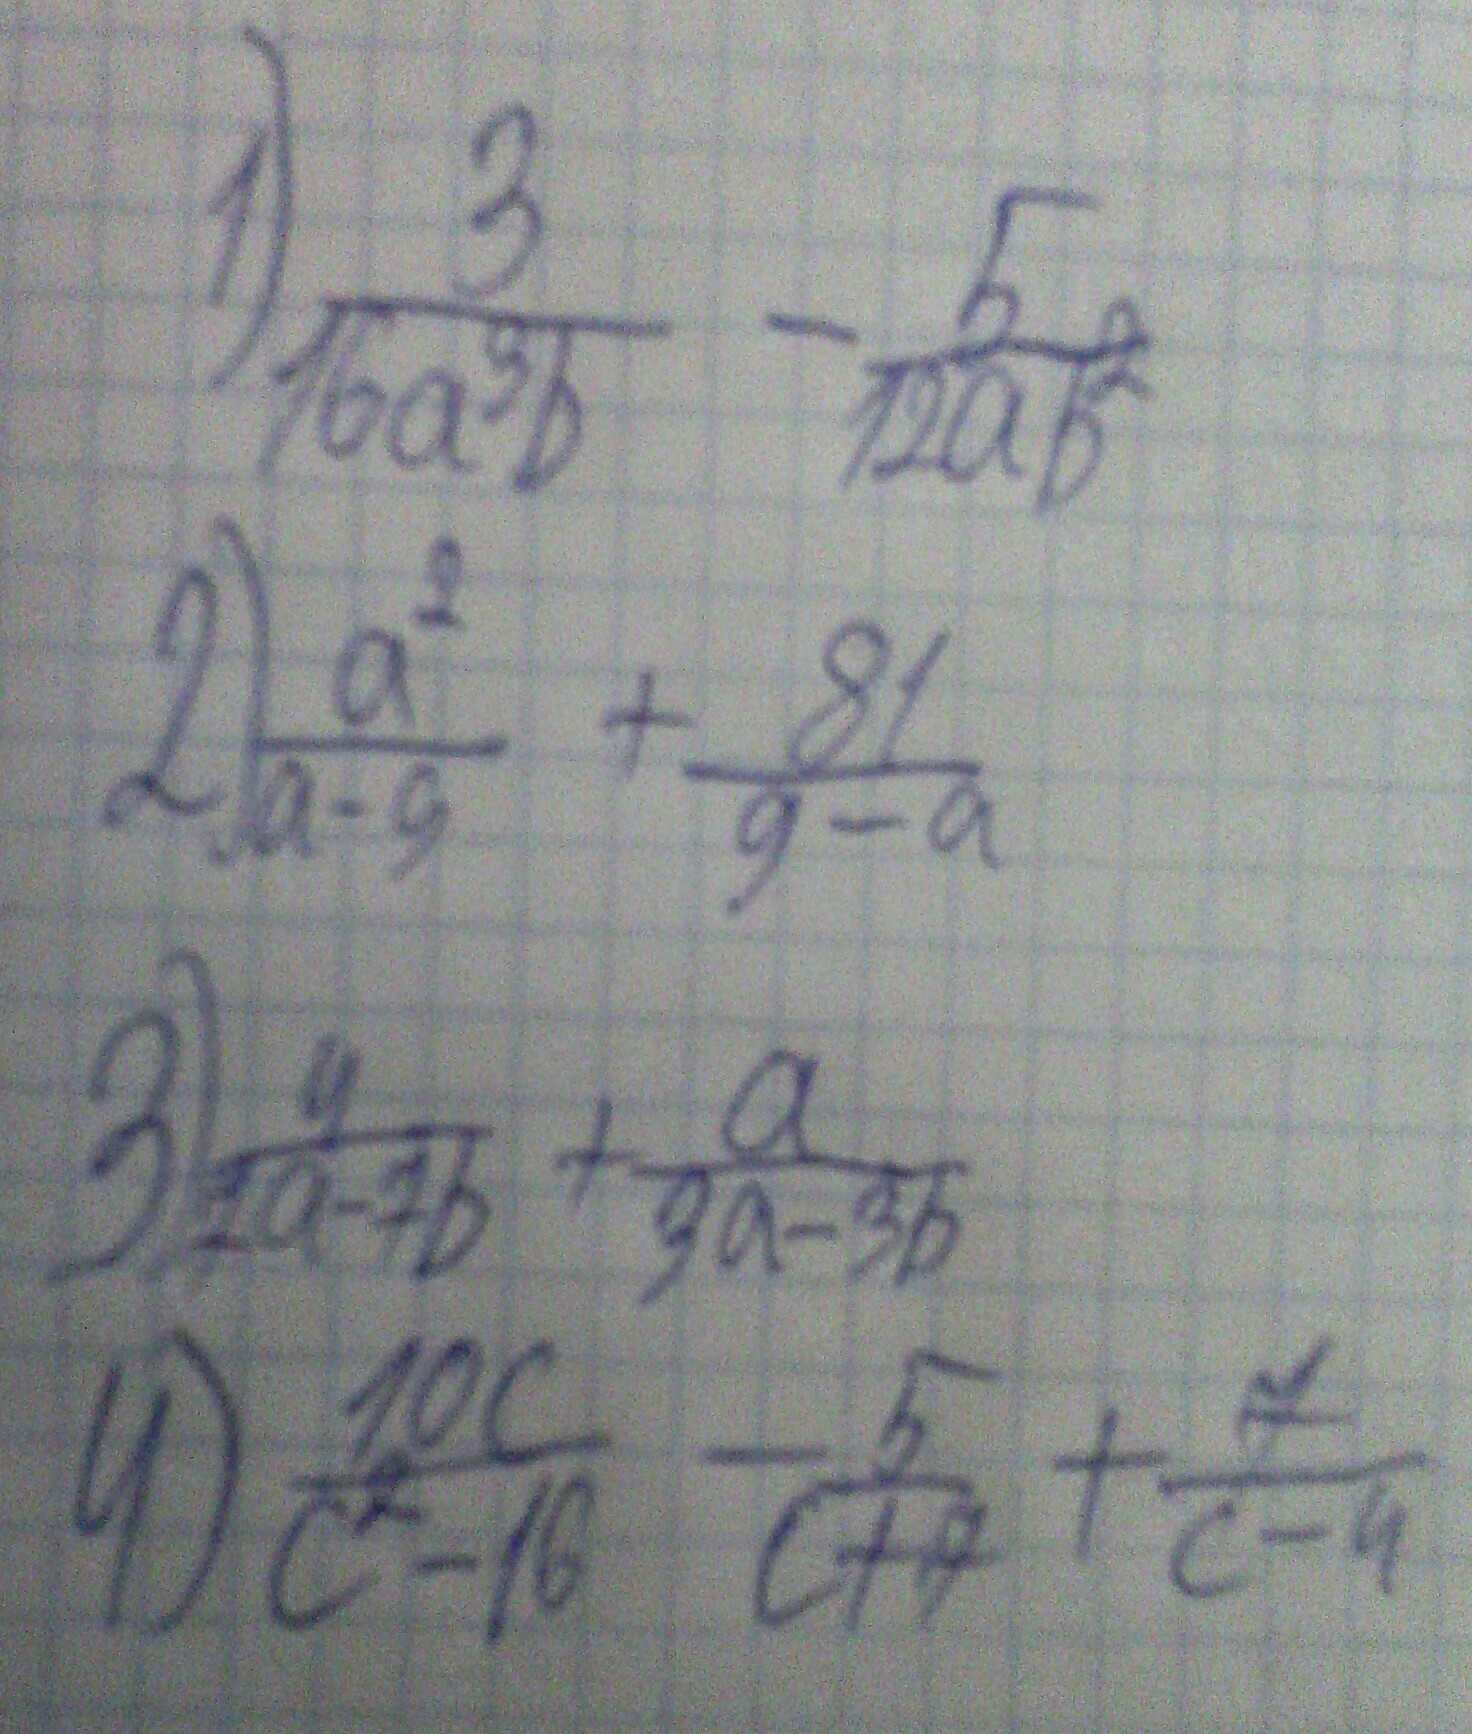 1) 3/(16a³b) - 5/(12ab²)
2) a²/(a-9) + 81/(9-a)
3) 4/(7a-7b) + a/(3a-3b)
4) 10c/(c²-16) - 5/(c+4) + /(c-4)